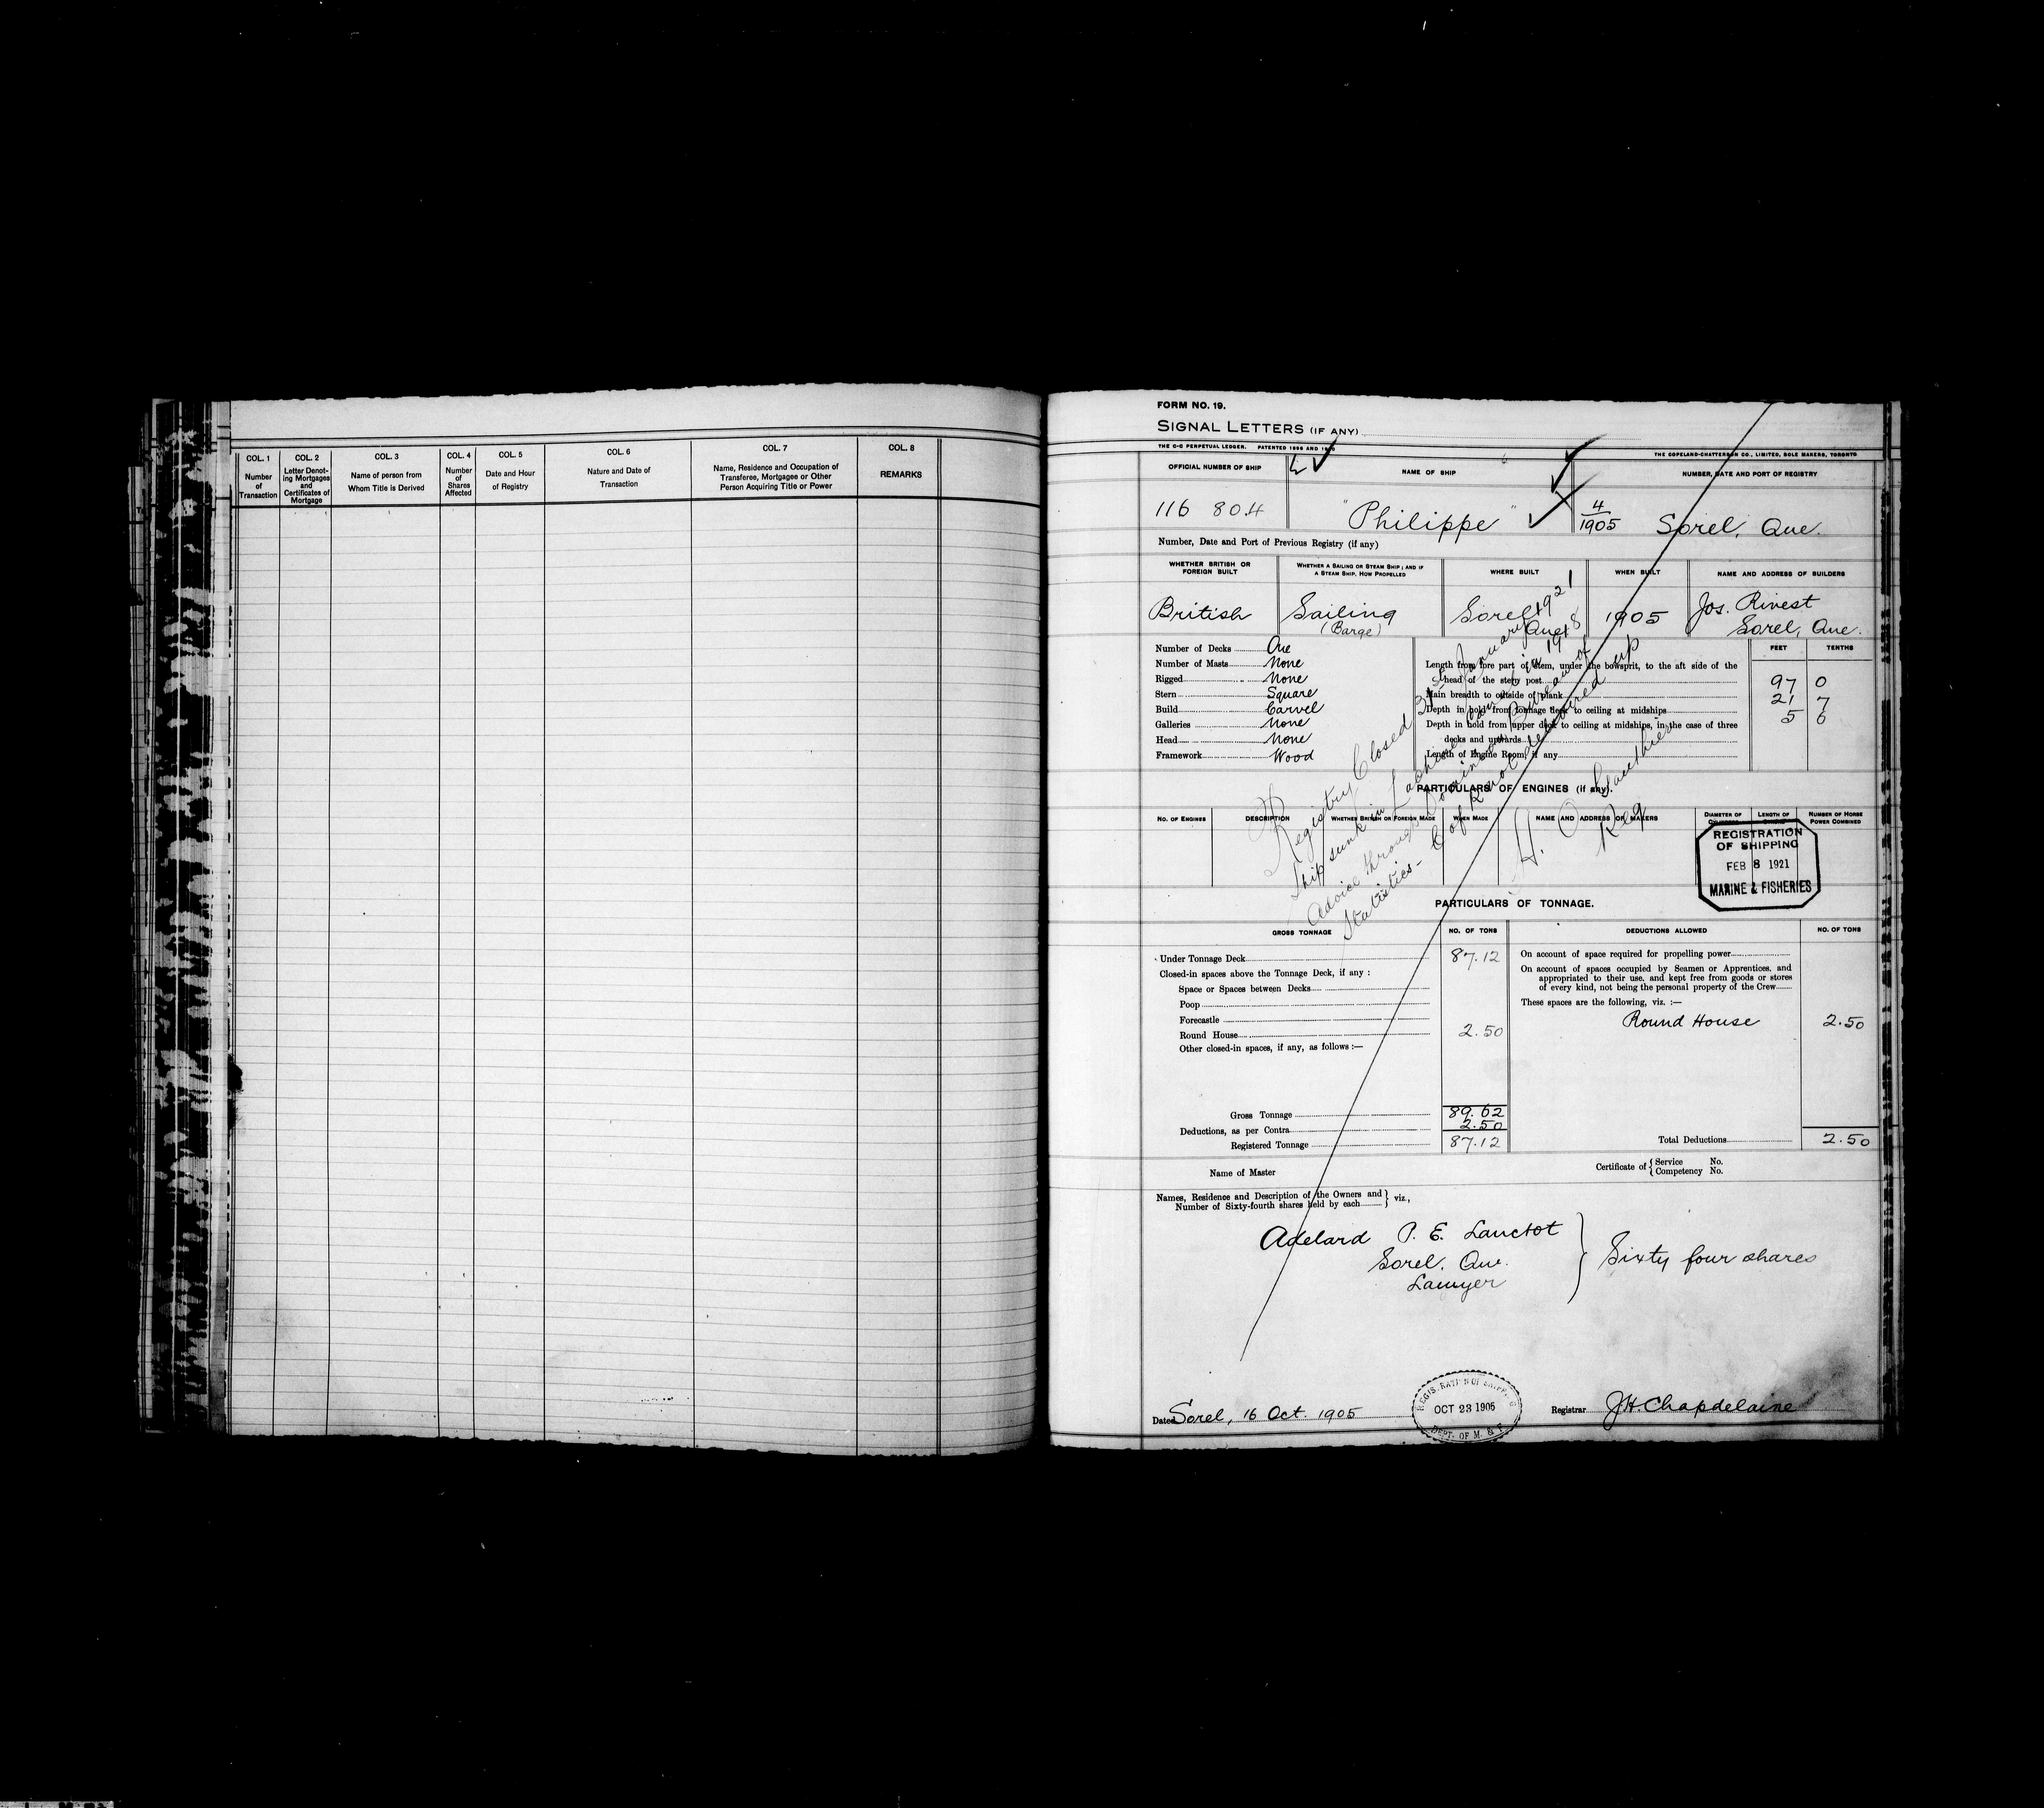 COL. 1
Number
of
Transaction
COL. 2
Letter Denot-
ing Mortgages
and
Certificates of
Mortgage
COL. 3
Name of person from
Whom Title is Derived
COL. 4
Number
of
Shares
Affected
COL. 5
Date and Hour
of Registry
COL. 6
Nature and Date of
Transaction
COL. 7
Name, Residence and Occupation of
Transferee, Mortgagee or Other
Person Acquiring Title or Power
COL. 8
REMARKS
FORM NO. 19.
SIGNAL LETTERS (IF ANY)
THE C-C PERPETUAL LEDGER. PATENTED 1896 AND
THE COPELAND-CHATTERSON CO., LIMITED, SOLE MAKERS, TORONTO
OFFICIAL NUMBER OF SHIP
NAME OF SHIP
NUMBER, DATE AND PORT OF REGISTRY
116 804
"Philippe"
4/1905 Sorel, Que.
Number, Date and Port of Previous Registry (if any)
WHETHER BRITISH OR
FOREIGN BUILT
WHETHER A SAILING OR STEAM SHIP; AND IF
A STEAM SHIP, HOW PROPELLED
WHERE BUILT
WHEN BUILT
NAME AND ADDRESS OF BUILDERS
British
Sailing
(Barge)
Sorel
Que
1905
Jos. Rivest
Sorel, Que.
Number of Decks One
Number of Masts None
Rigged None
Stern Square
Build Carvel
Galleries None
Head None
Framework Wood
FEET TENTHS
Length from fore part of stem, under the bowsprit, to the aft side of the
head of the stern post 97 0
Main breadth to outside of plank 21 7
Depth in hold from tonnage deck to ceiling at midships 5 6
Depth in hold from upper deck to ceiling at midships, in the case of three
decks and upwards
Length of Engine Room, if any
Registry Closed 31st January 1921
Ship sunk in Lachine Canal in 1918
Advice through Dominion Bureau of
Statistics - C of R not delivered up
H. O. Gauthier
Reg
PARTICULARS OF ENGINES (if any).
NO. OF ENGINES
DESCRIPTION
WHETHER BRITISH OR FOREIGN MADE
WHEN MADE
NAME AND ADDRESS OF MAKERS
DIAMETER OF
LENGTH OF
NUMBER OF HORSE
POWER COMBINED
REGISTRATION
OF SHIPPING
FEB 8 1921
MARINE & FISHERIES
PARTICULARS OF TONNAGE.
GROSS TONNAGE
NO. OF TONS
DEDUCTIONS ALLOWED
NO. OF TONS
Under Tonnage Deck 87.12
Closed-in spaces above the Tonnage Deck, if any :
Space or Spaces between Decks
Poop
Forecastle
Round House 2.50
Other closed-in spaces, if any, as follows :—
Gross Tonnage 89.62
Deductions, as per Contra 2.50
Registered Tonnage 87.12
On account of space required for propelling power
On account of spaces occupied by Seamen or Apprentices, and
appropriated to their use, and kept free from goods or stores
of every kind, not being the personal property of the Crew
These spaces are the following, viz. :—
Round House 2.50
Total Deductions 2.50
Name of Master
Certificate of { Service No.
Competency No.
Names, Residence and Description of the Owners and } viz.,
Number of Sixty-fourth shares held by each
Adelard P. E. Lanctot
Sorel. Que.
Lawyer
Sixty four shares
Dated Sorel, 16 Oct. 1905
OCT 23 1905
DEPT. OF M. & F.
Registrar J.H. Chapdelaine